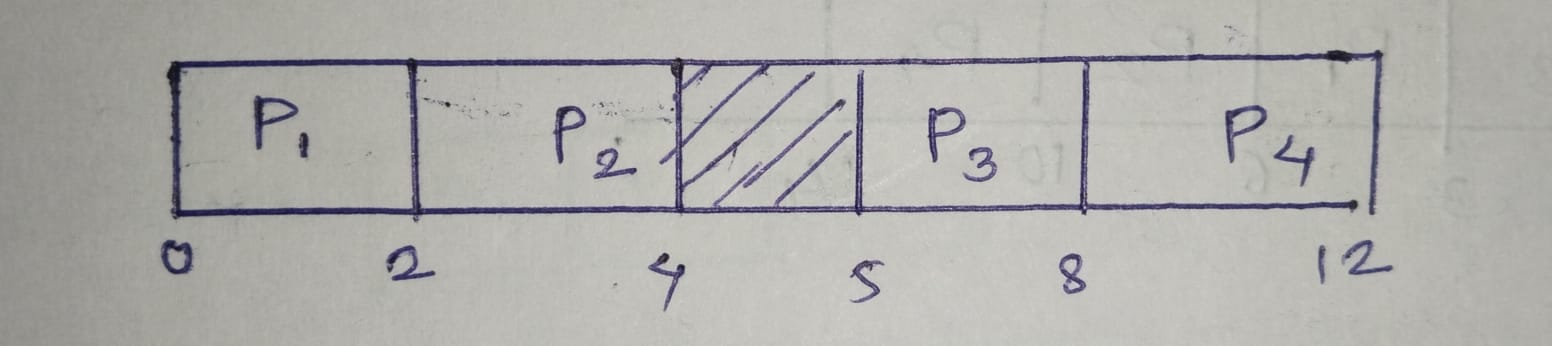 P₁ P₂ P₃ P₄
0 2 4 5 8 12